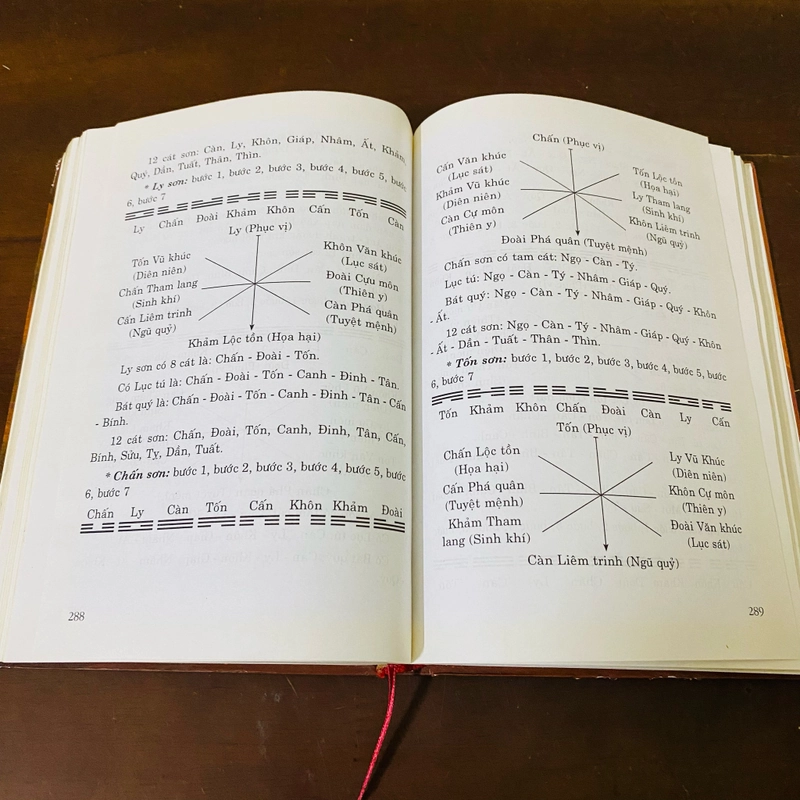 12 cát sơn: Càn, Ly, Khôn, Giáp, Nhâm, Ất, Khảm,
Quý, Dần, Tuất, Thân, Thìn.
* Ly sơn: bước 1, bước 2, bước 3, bước 4, bước 5, bước
6, bước 7
Ly Chấn Đoài Khảm Khôn Cấn Tốn Càn
Ly (Phục vị)
Tốn Vũ khúc
(Diên niên)
Chấn Tham lang
(Sinh khí)
Cấn Liêm trinh
(Ngũ quỷ)
Khôn Văn khúc
(Lục sát)
Đoài Cựu môn
(Thiên y)
Càn Phá quân
(Tuyệt mệnh)
Khảm Lộc tồn (Họa hại)
Ly sơn có 8 cát là: Chấn - Đoài - Tốn.
Có Lục tú là: Chấn - Đoài - Tốn - Canh - Đinh - Tân.
Bát quý là: Chấn - Đoài - Tốn - Canh - Đinh - Tân - Cấn
- Bính.
12 cát sơn: Chấn, Đoài, Tốn, Canh, Đinh, Tân, Cấn,
Bính, Sửu, Tỵ, Dần, Tuất.
* Chấn sơn: bước 1, bước 2, bước 3, bước 4, bước 5, bước
6, bước 7
Chấn Ly Càn Tốn Cấn Khôn Khảm Đoài
288
Chấn (Phục vị)
Cấn Văn khúc
(Lục sát)
Khảm Vũ khúc
(Diên niên)
Càn Cự môn
(Thiên y)
Tốn Lộc tồn
(Họa hại)
Ly Tham lang
(Sinh khí)
Khôn Liêm trinh
(Ngũ quỷ)
Đoài Phá quân (Tuyệt mệnh)
Chấn sơn có tam cát: Ngọ - Càn - Tý.
Lục tú: Ngọ - Càn - Tý - Nhâm - Giáp - Quý.
Bát quý: Ngọ - Càn - Tý - Nhâm - Giáp - Quý - Khôn
- Ất.
12 cát sơn: Ngọ - Càn - Tý - Nhâm - Giáp - Quý - Khôn
- Ất - Dần - Tuất - Thân - Thìn.
* Tốn sơn: bước 1, bước 2, bước 3, bước 4, bước 5, bước
6, bước 7
Tốn Khảm Khôn Chấn Đoài Càn Ly Cấn
Tốn (Phục vị)
Chấn Lộc tồn
(Họa hại)
Cấn Phá quân
(Tuyệt mệnh)
Khảm Tham
lang (Sinh khí)
Ly Vũ Khúc
(Diên niên)
Khôn Cự môn
(Thiên y)
Đoài Văn khúc
(Lục sát)
Càn Liêm trinh (Ngũ quỷ)
289